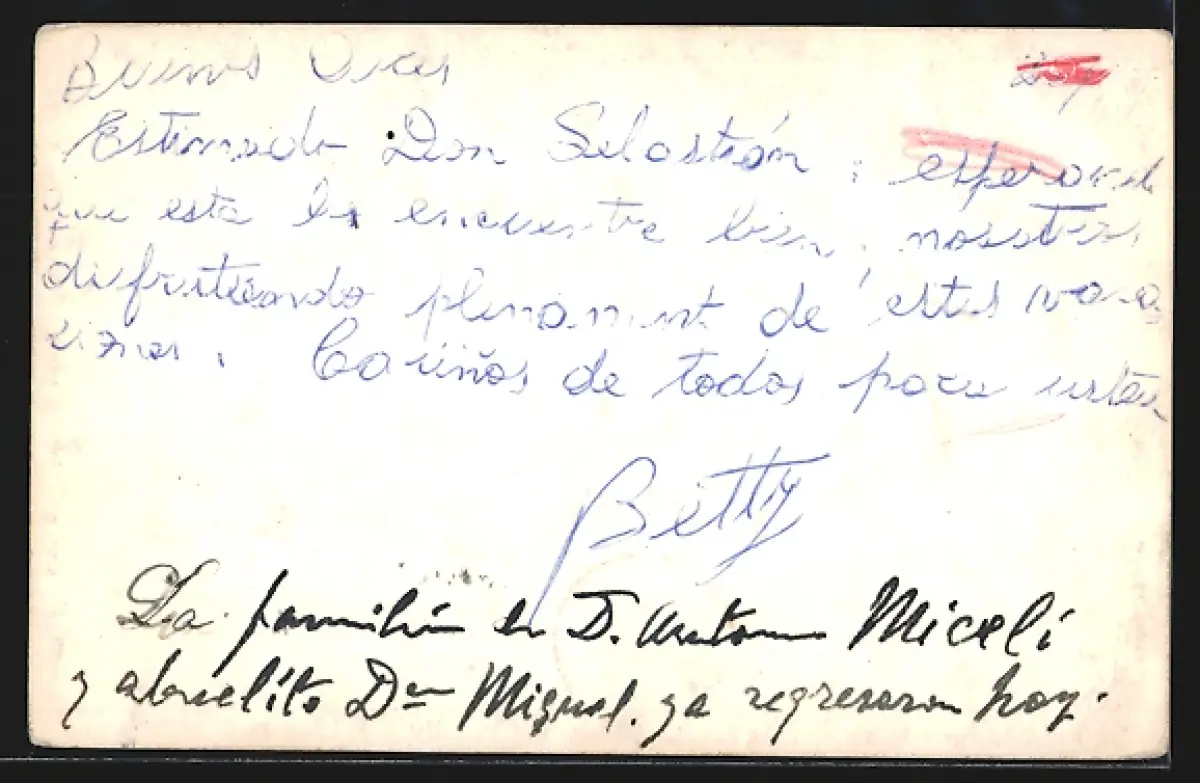 Buenos Aires
Estimado Don Sebastián: esperando
que esta lo encuentre bien, nosotros
disfrutando plenament de éstas vaca
ciones. Cariños de todos para ustedes
Betty
La familia de D. Antonio Miceli
y abuelito Don Miguel. ya regresaron hoy.